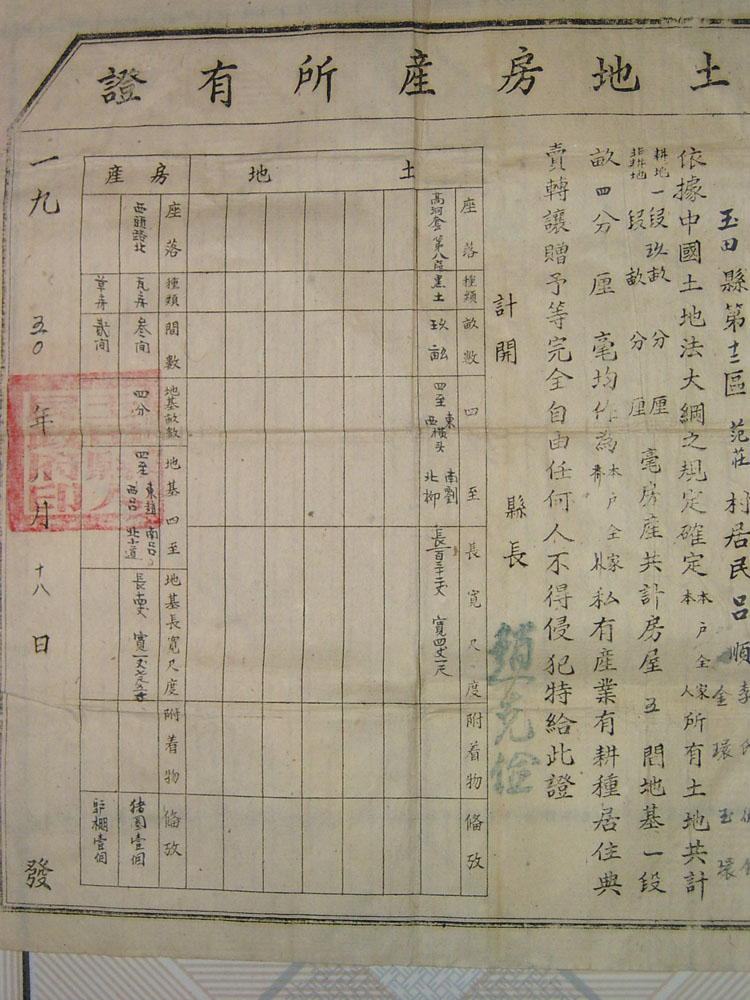 土地房產所有證
玉田縣第十二區范莊村居民呂順
金環玉環
依據中國土地法大綱之規定確定本戶全家本人所有土地共計
耕地一段玖畝 分 厘
非耕地 段 畝 分 厘
毫房產共計房屋五間地基一段
畝四分 厘 毫均作為本戶全家私有產業有耕種居住典
賣轉讓贈予等完全自由任何人不得侵犯特給此證
計開
縣長
趙克儉
土地
座落 種類 畝數 四至 長寬尺度 附着物 備攷
高河套第八段黑土 玖畝 四至 東 西橫头 南劉 北柳 長一百三十二丈 寬四丈一尺
房產
座落 種類 間數 地基畝數 地基四至 地基長寬尺度 附着物 備攷
西頭路北 瓦房 叁間 四分 四至 東趙 西呂 南呂 北小道 猪圈壹個
草房 貳間 驴棚壹個
一九五〇年 月十八日 發